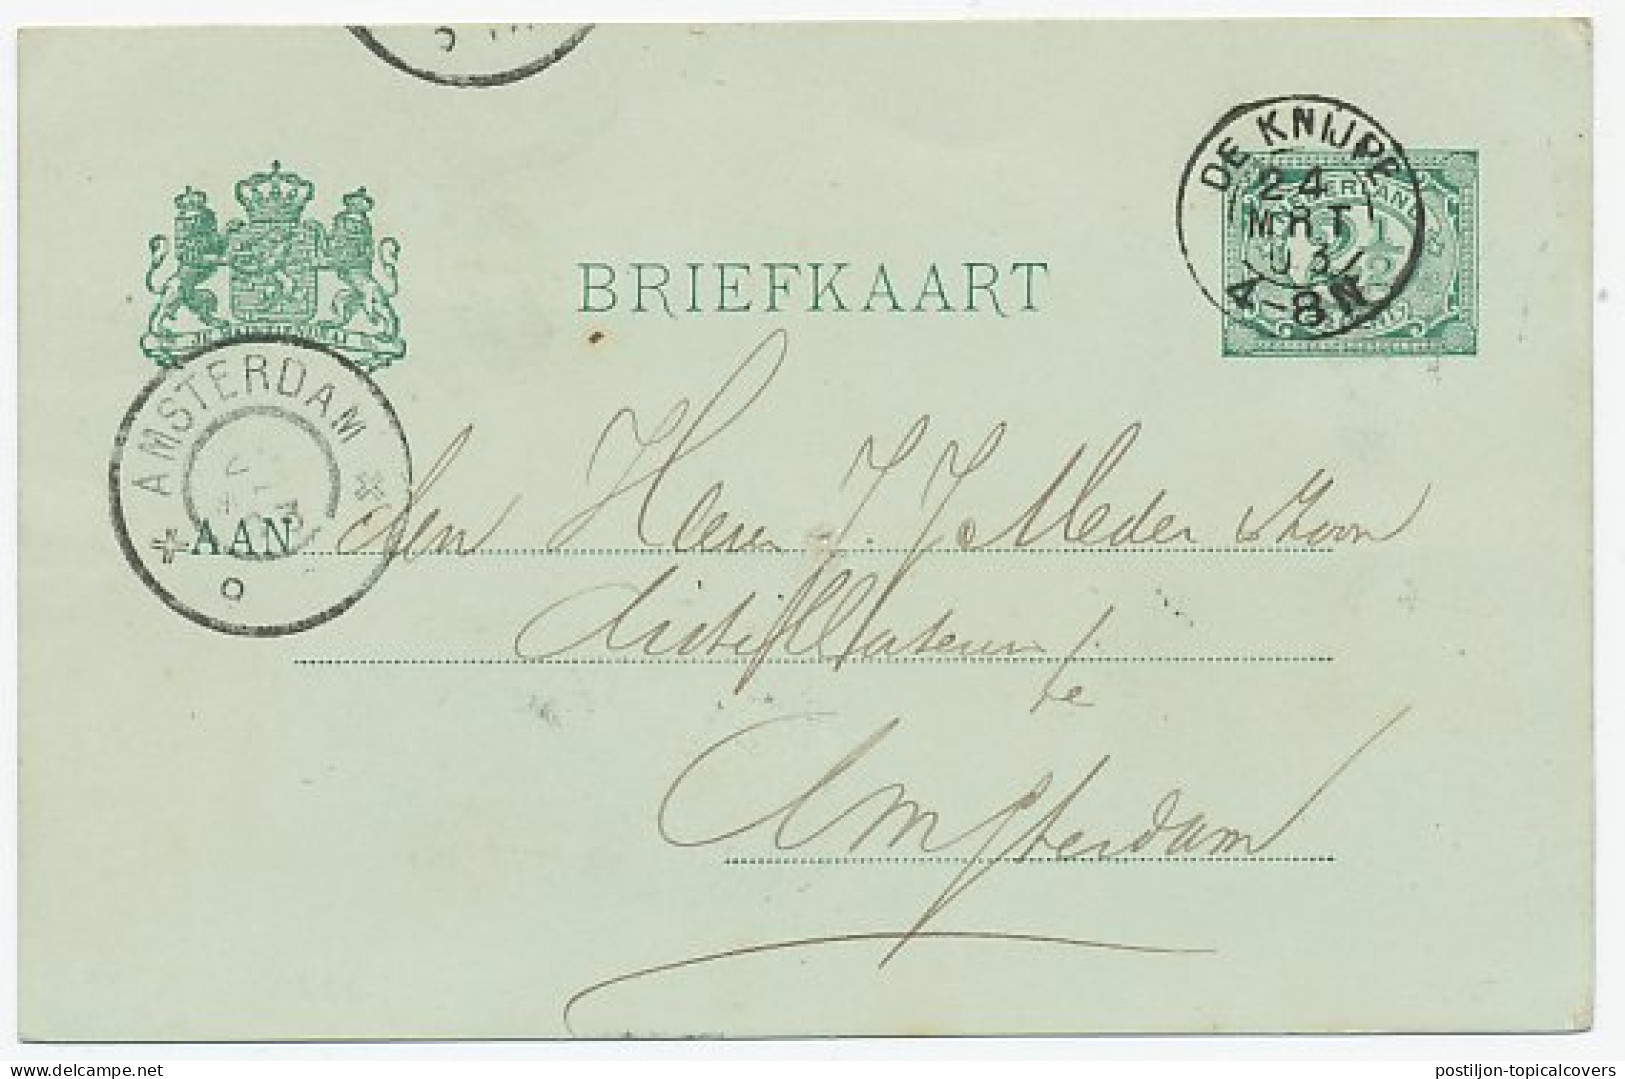 BRIEFKAART
DE KNIJPE
24
MRT
03
4-8N
NEDERLAND
2½
AMSTERDAM
AAN den Heer J. J. Meder & Zoon
distillateurs
te
Amsterdam
www.delcampe.net
postiljon-topicalcovers